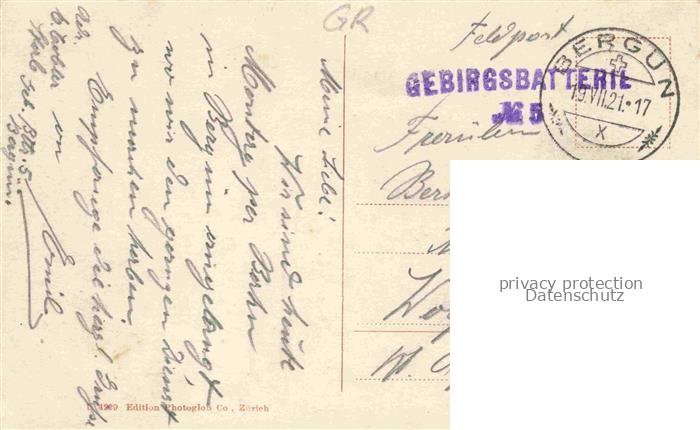 GR
Feldpost
BERGÜN
19.VII.21.-17
X
GEBIRGSBATTERIE
№ 5
Fräulein
Meine Liebe!
Wir sind heute
Montag per Bahn
in Bergün angelangt
wo wir den ganzen Dienst
zu machen haben.
Empfange die herzl. Grüsse
von
Emil
Adr.
Geb. Bttr. 5.
Bergün.
privacy protection
Datenschutz
Edition Photoglob Co., Zürich